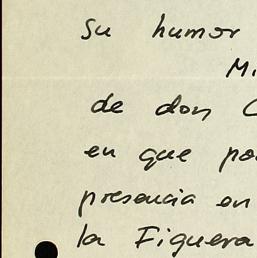 Su humor
M
de don C
en que po
presencia en
la Figuera